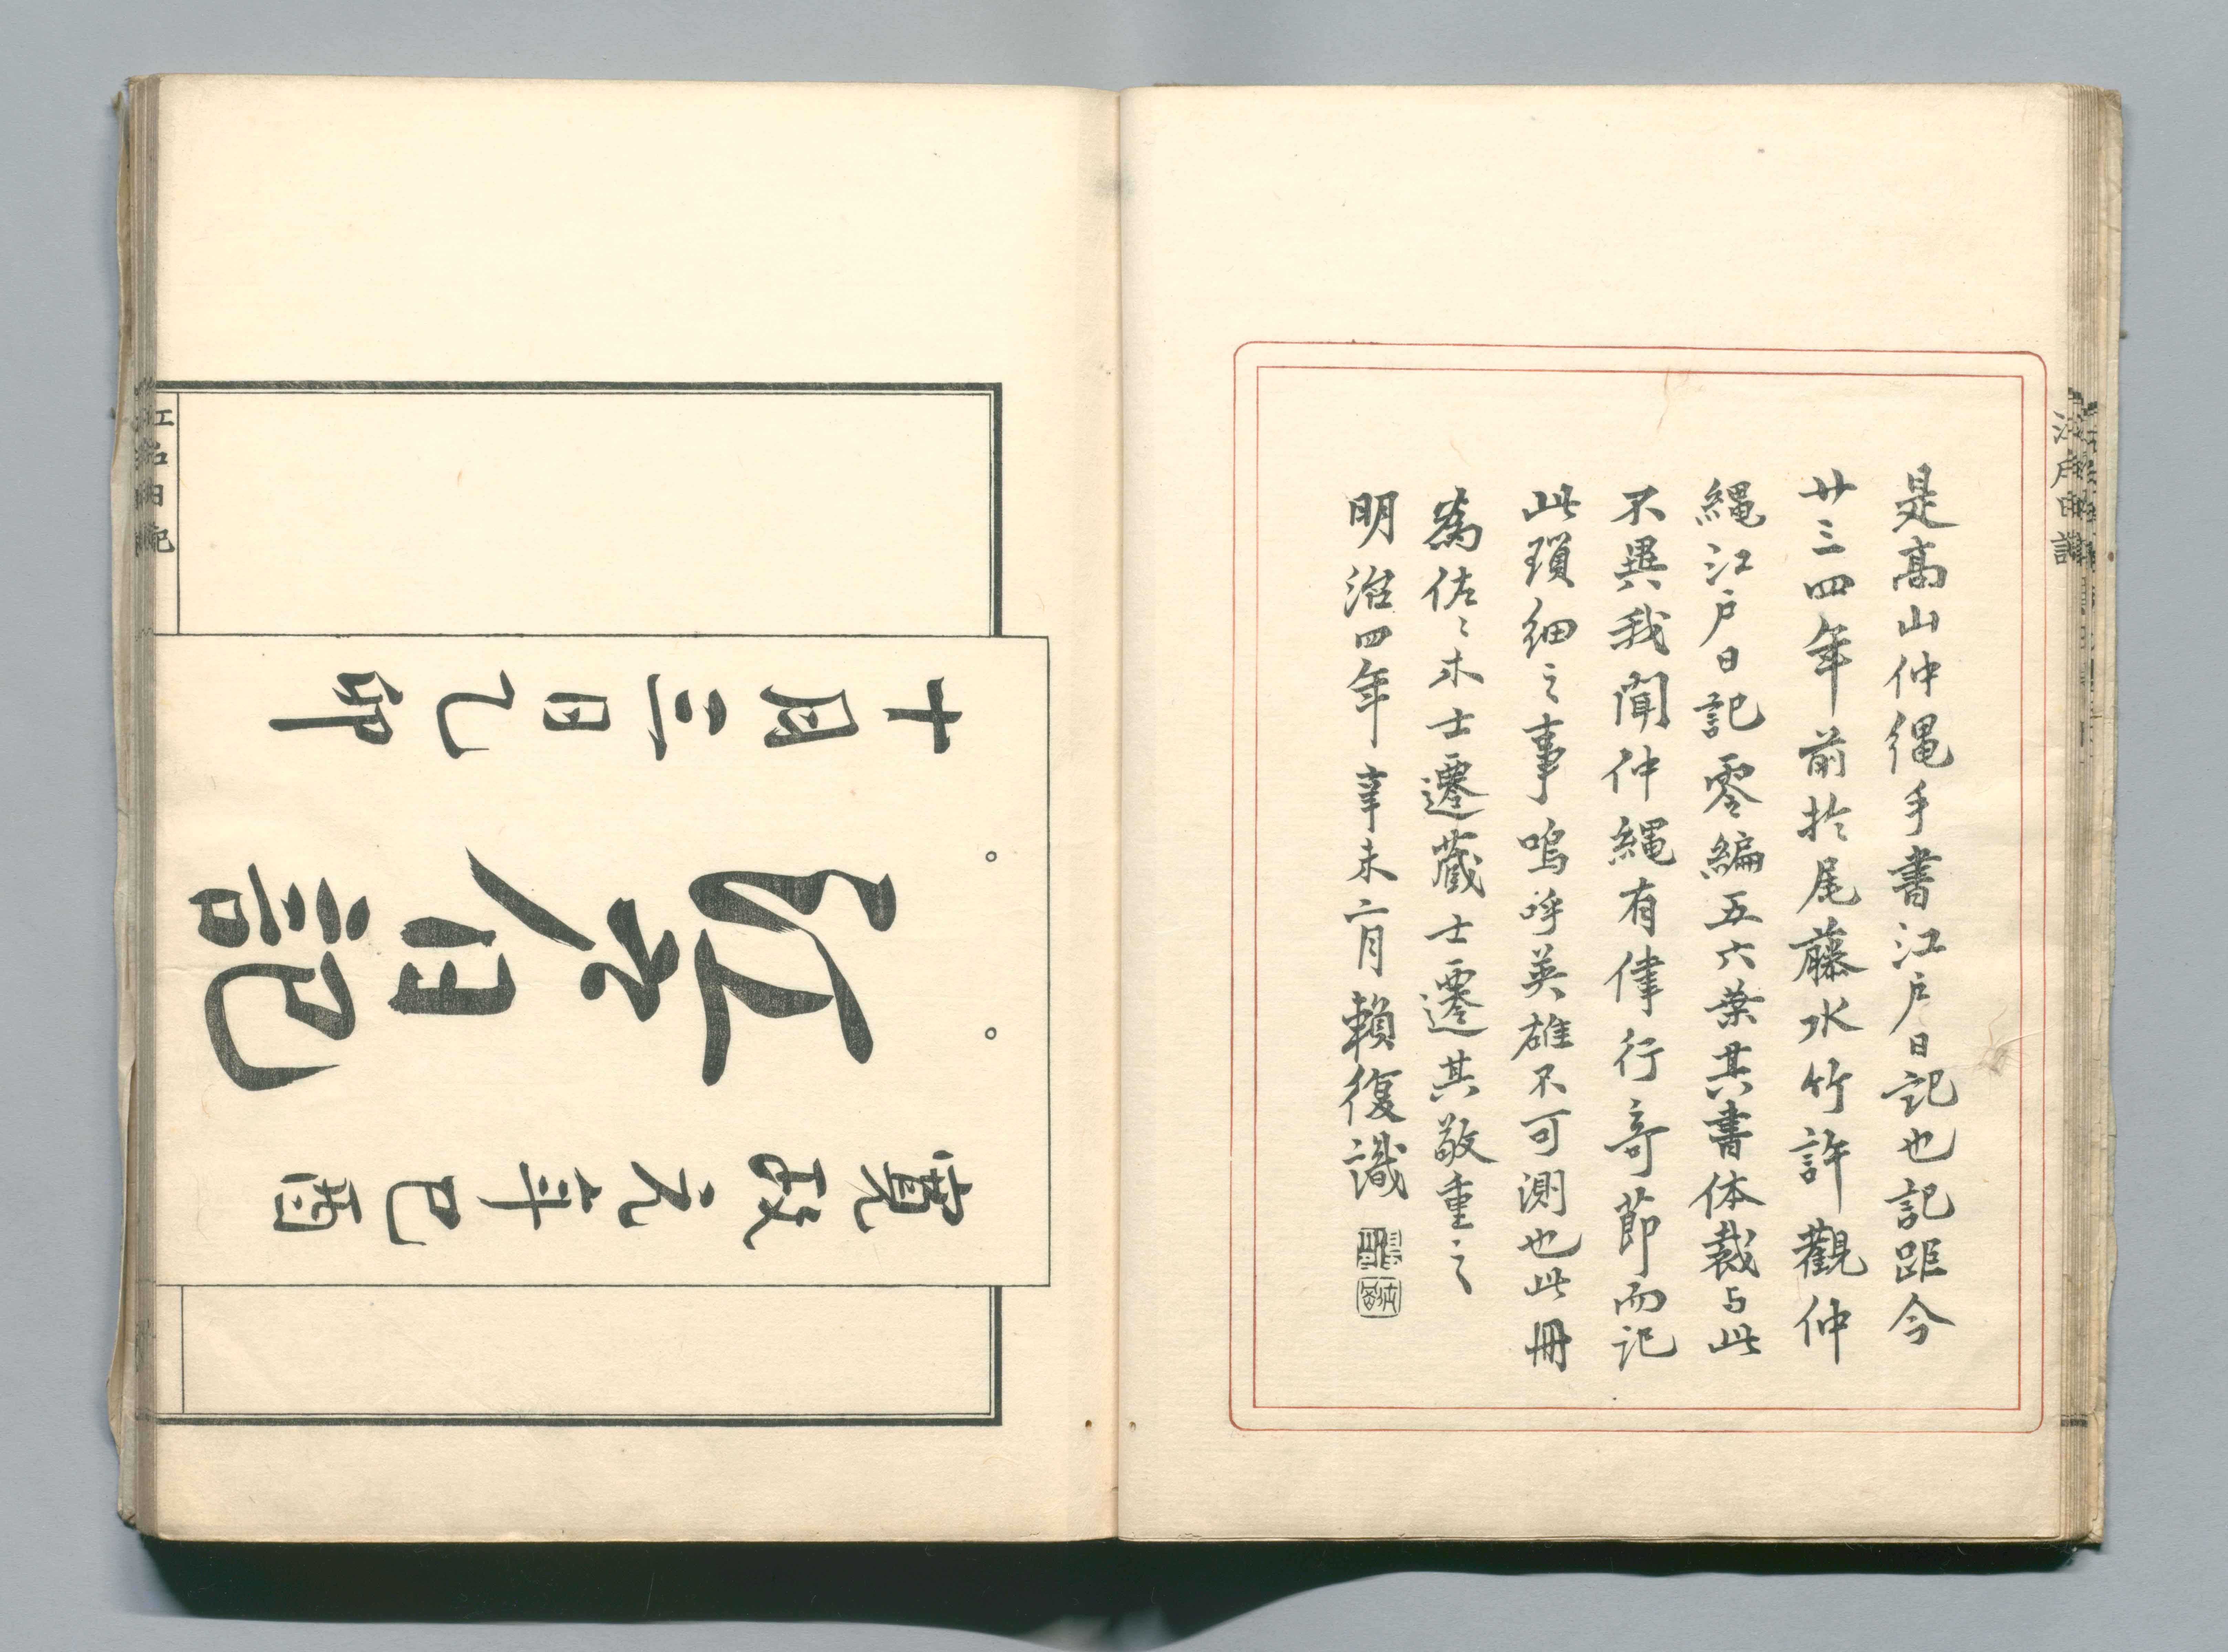 是高山仲縄手書江戸日記也記距今
廿三四年前於尾藤水竹許觀仲
縄江戸日記零編五六葉其書体裁与此
不異我聞仲縄有偉行奇節而記
此瑣細之事嗚呼英雄不可測也此冊
為佐々木士遷蔵士遷其敬重之
明治四年辛未二月賴復識
寛政元年己酉
江日記
十月三日乙卯